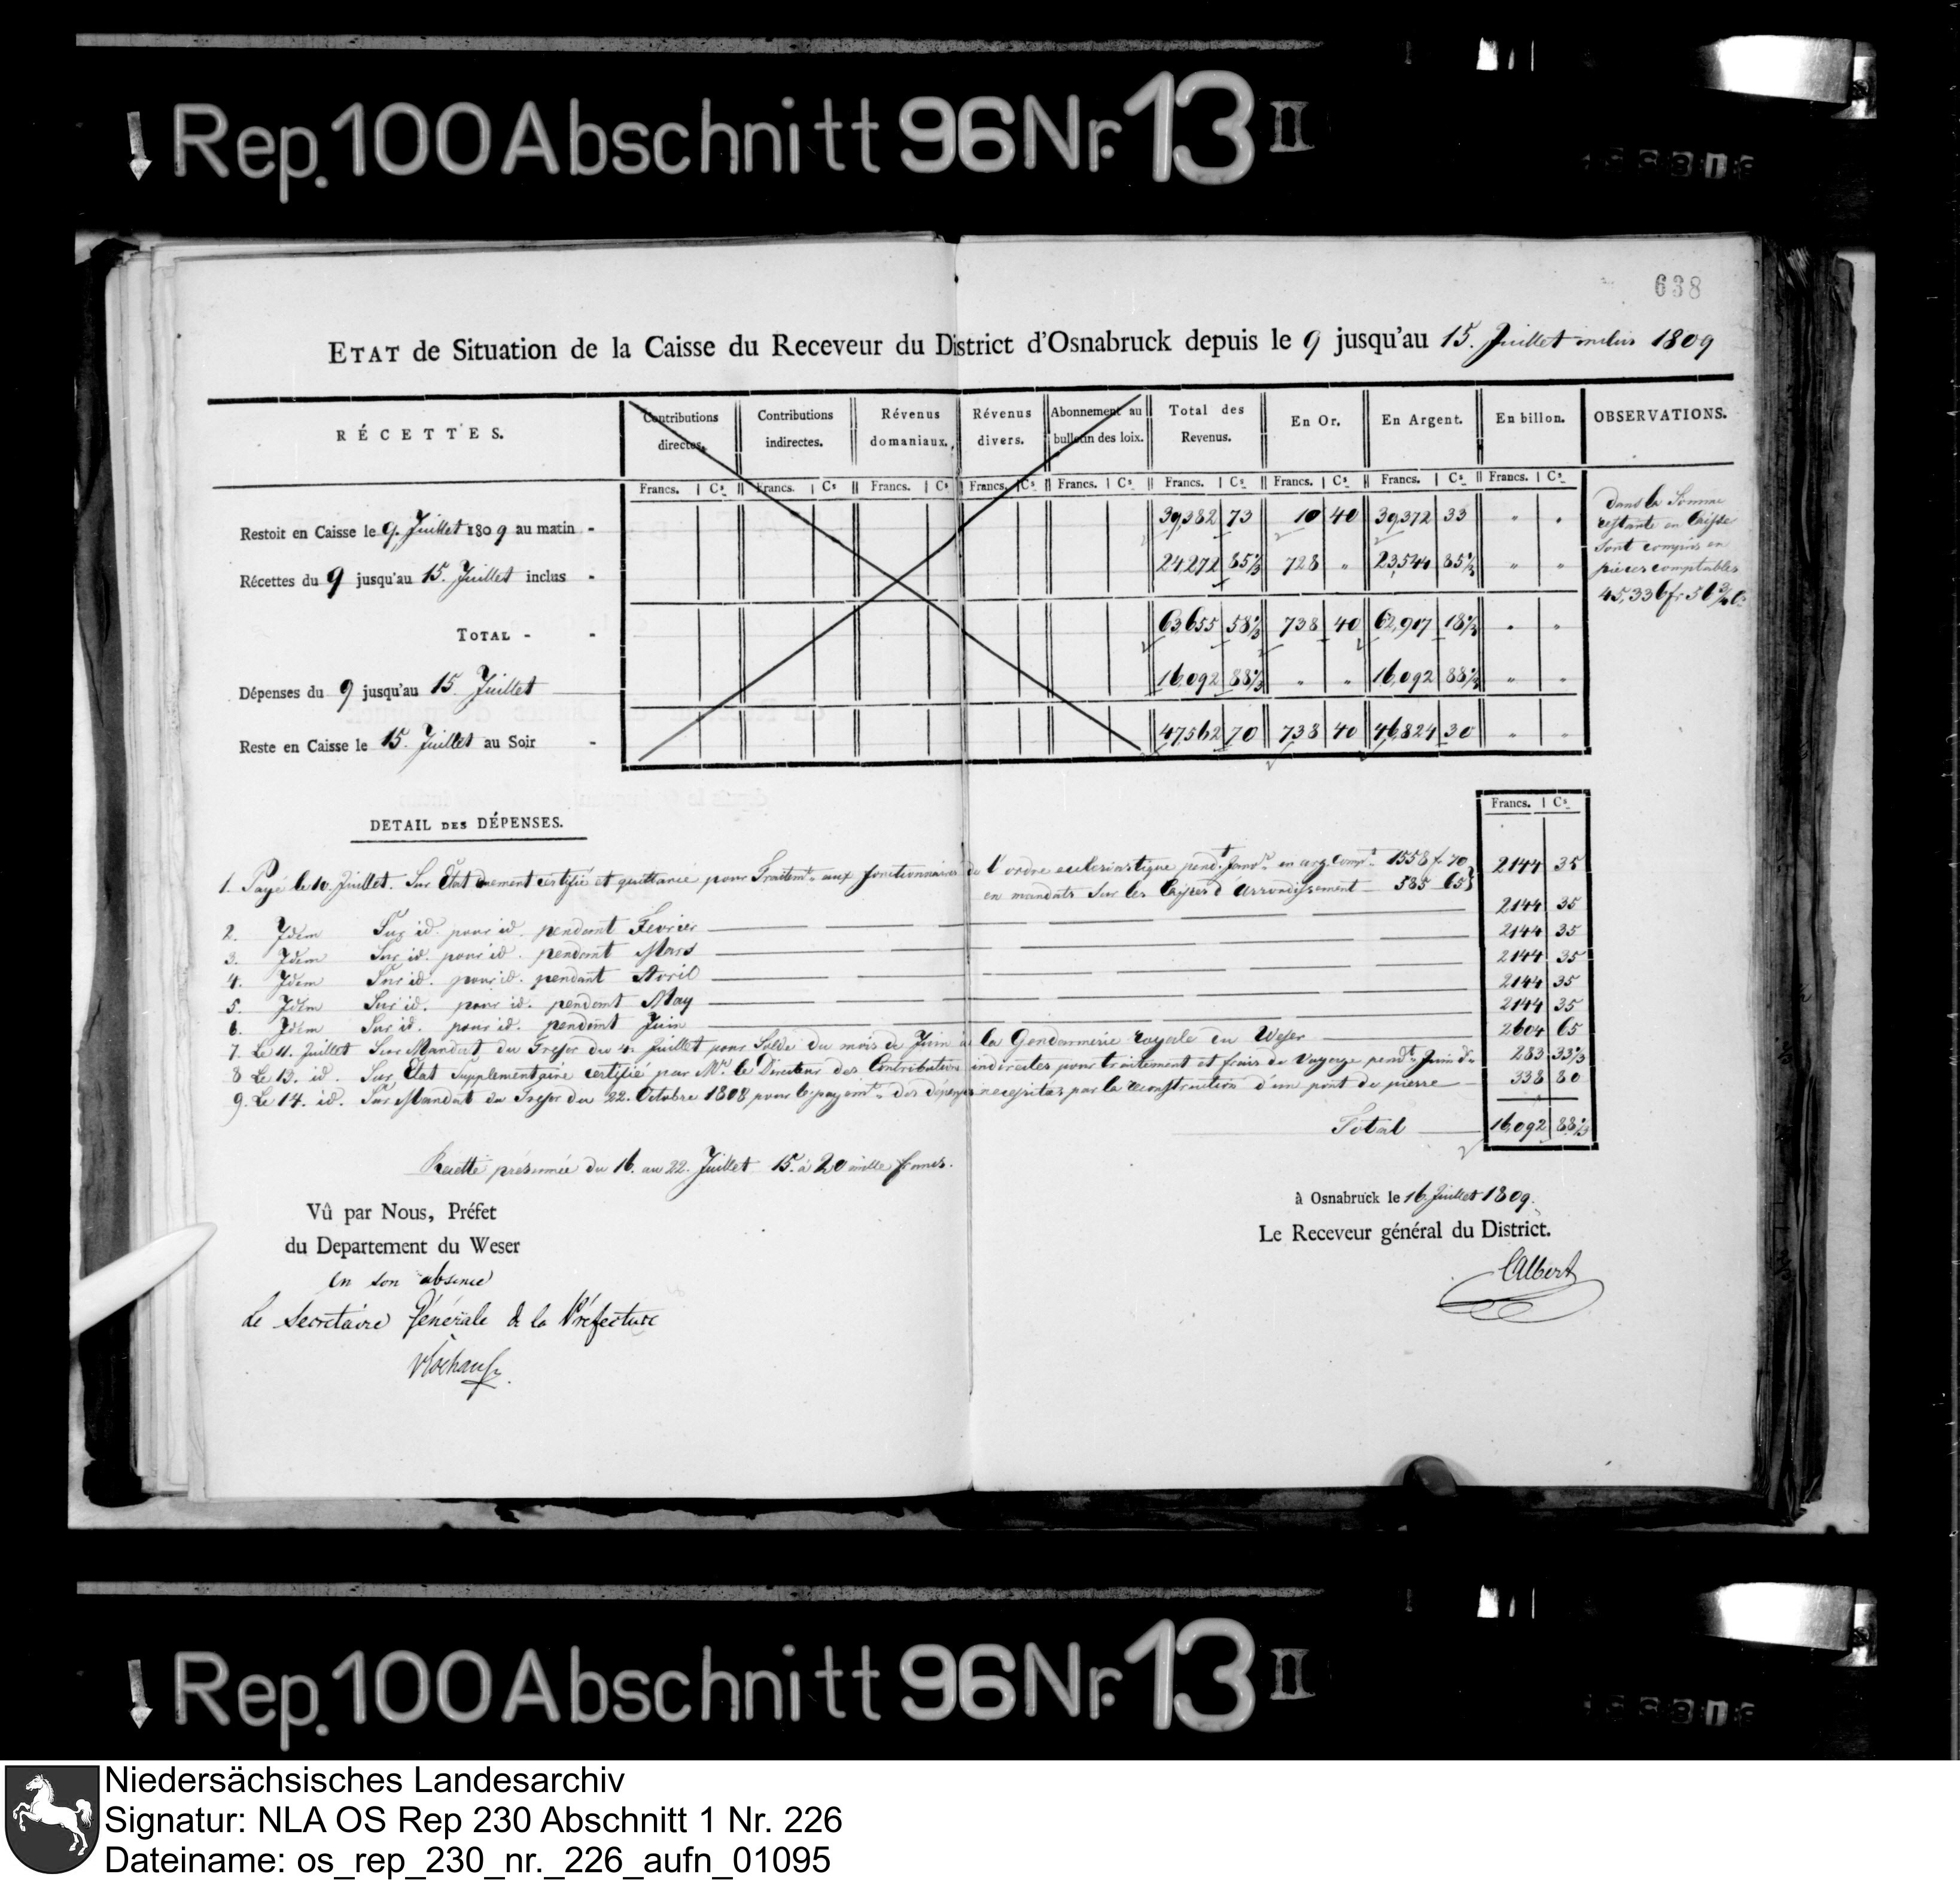 Rep. 100 Abschnitt 96 Nr. 13 II
638
ETAT de Situation de la Caisse du Receveur du District d'Osnabruck depuis le 9 jusqu'au 15. Juillet inclus 1809
RÉCETTES. Contributions directes. Contributions indirectes. Révenus domaniaux. Révenus divers. Abonnement au bulletin des loix. Total des Revenus. En Or. En Argent. En billon. OBSERVATIONS.
Francs. Cs. Francs. Cs Francs. Cs Francs. Cs Francs. Cs Francs. Cs. Francs. Cs. Francs. Cs. Francs. Cs.
Restoit en Caisse le 9. Juillet 1809 au matin - 39,382 73 10 40 39,372 33 " "
Récettes du 9 jusqu'au 15. Juillet inclus - 24,272 85⅓ 728 " 23,544 85⅓ " "
TOTAL - - 63,655 58⅓ 738 40 62,917 18⅓ " "
Dépenses du 9 jusqu'au 15. Juillet 16,092 88⅓ " " 16,092 88⅓ " "
Reste en Caisse le 15. Juillet au Soir - 47,562 70 738 40 46,824 30 " "
Dans la Somme
restante en Caisse
sont compris en
pièces comptables
45,336 fr 56
DETAIL DES DÉPENSES. Francs. Cs.
1. Payé le 10. Juillet. Sur Etat dument certifié et quittancé pour Traitemt. aux fonctionnaires de l'ordre eclesiastique pendt. Janvr. en arg. compt. 1558 f. 70 2144 35
en mandats sur les Caisses d'Arrondissement 585 65
2. Idem Sur id. pour id. pendant Fevrier 2144 35
3. Idem Sur id. pour id. pendant Mars 2144 35
4. Idem Sur id. pour id. pendant Avril 2144 35
5. Idem Sur id. pour id. pendant May 2144 35
6. Idem Sur id. pour id. pendant Juin 2144 35
7. Le 11. Juillet Sur Mandat du Tresor du 4. Juillet pour Solde du mois de Juin à la Gendarmerie royale du Weser 2604 65
8 Le 13. id. Sur Etat Supplementaire certifié par Mr. le Directeur des Contributions indirectes pour traitement et frais de Voyage pendt. Juin dr. 283 33⅓
9. Le 14. id. Sur Mandat du Tresor du 22. Octobre 1808 pour le payemt. des dépenses necessitées par la reconstruction d'un pont de pierre 338 80
Total 16,092 88⅓
Recette présumée du 16. au 22. Juillet 15. à 20 mille francs.
Vû par Nous, Préfet
du Departement du Weser
en son absence
Le Secretaire Générale de la Préfecture
à Osnabruck le 16. Juillet 1809.
Le Receveur général du District.
CAlbert
Rep. 100 Abschnitt 96 Nr. 13 II
Niedersächsisches Landesarchiv
Signatur: NLA OS Rep 230 Abschnitt 1 Nr. 226
Dateiname: os_rep_230_nr._226_aufn_01095